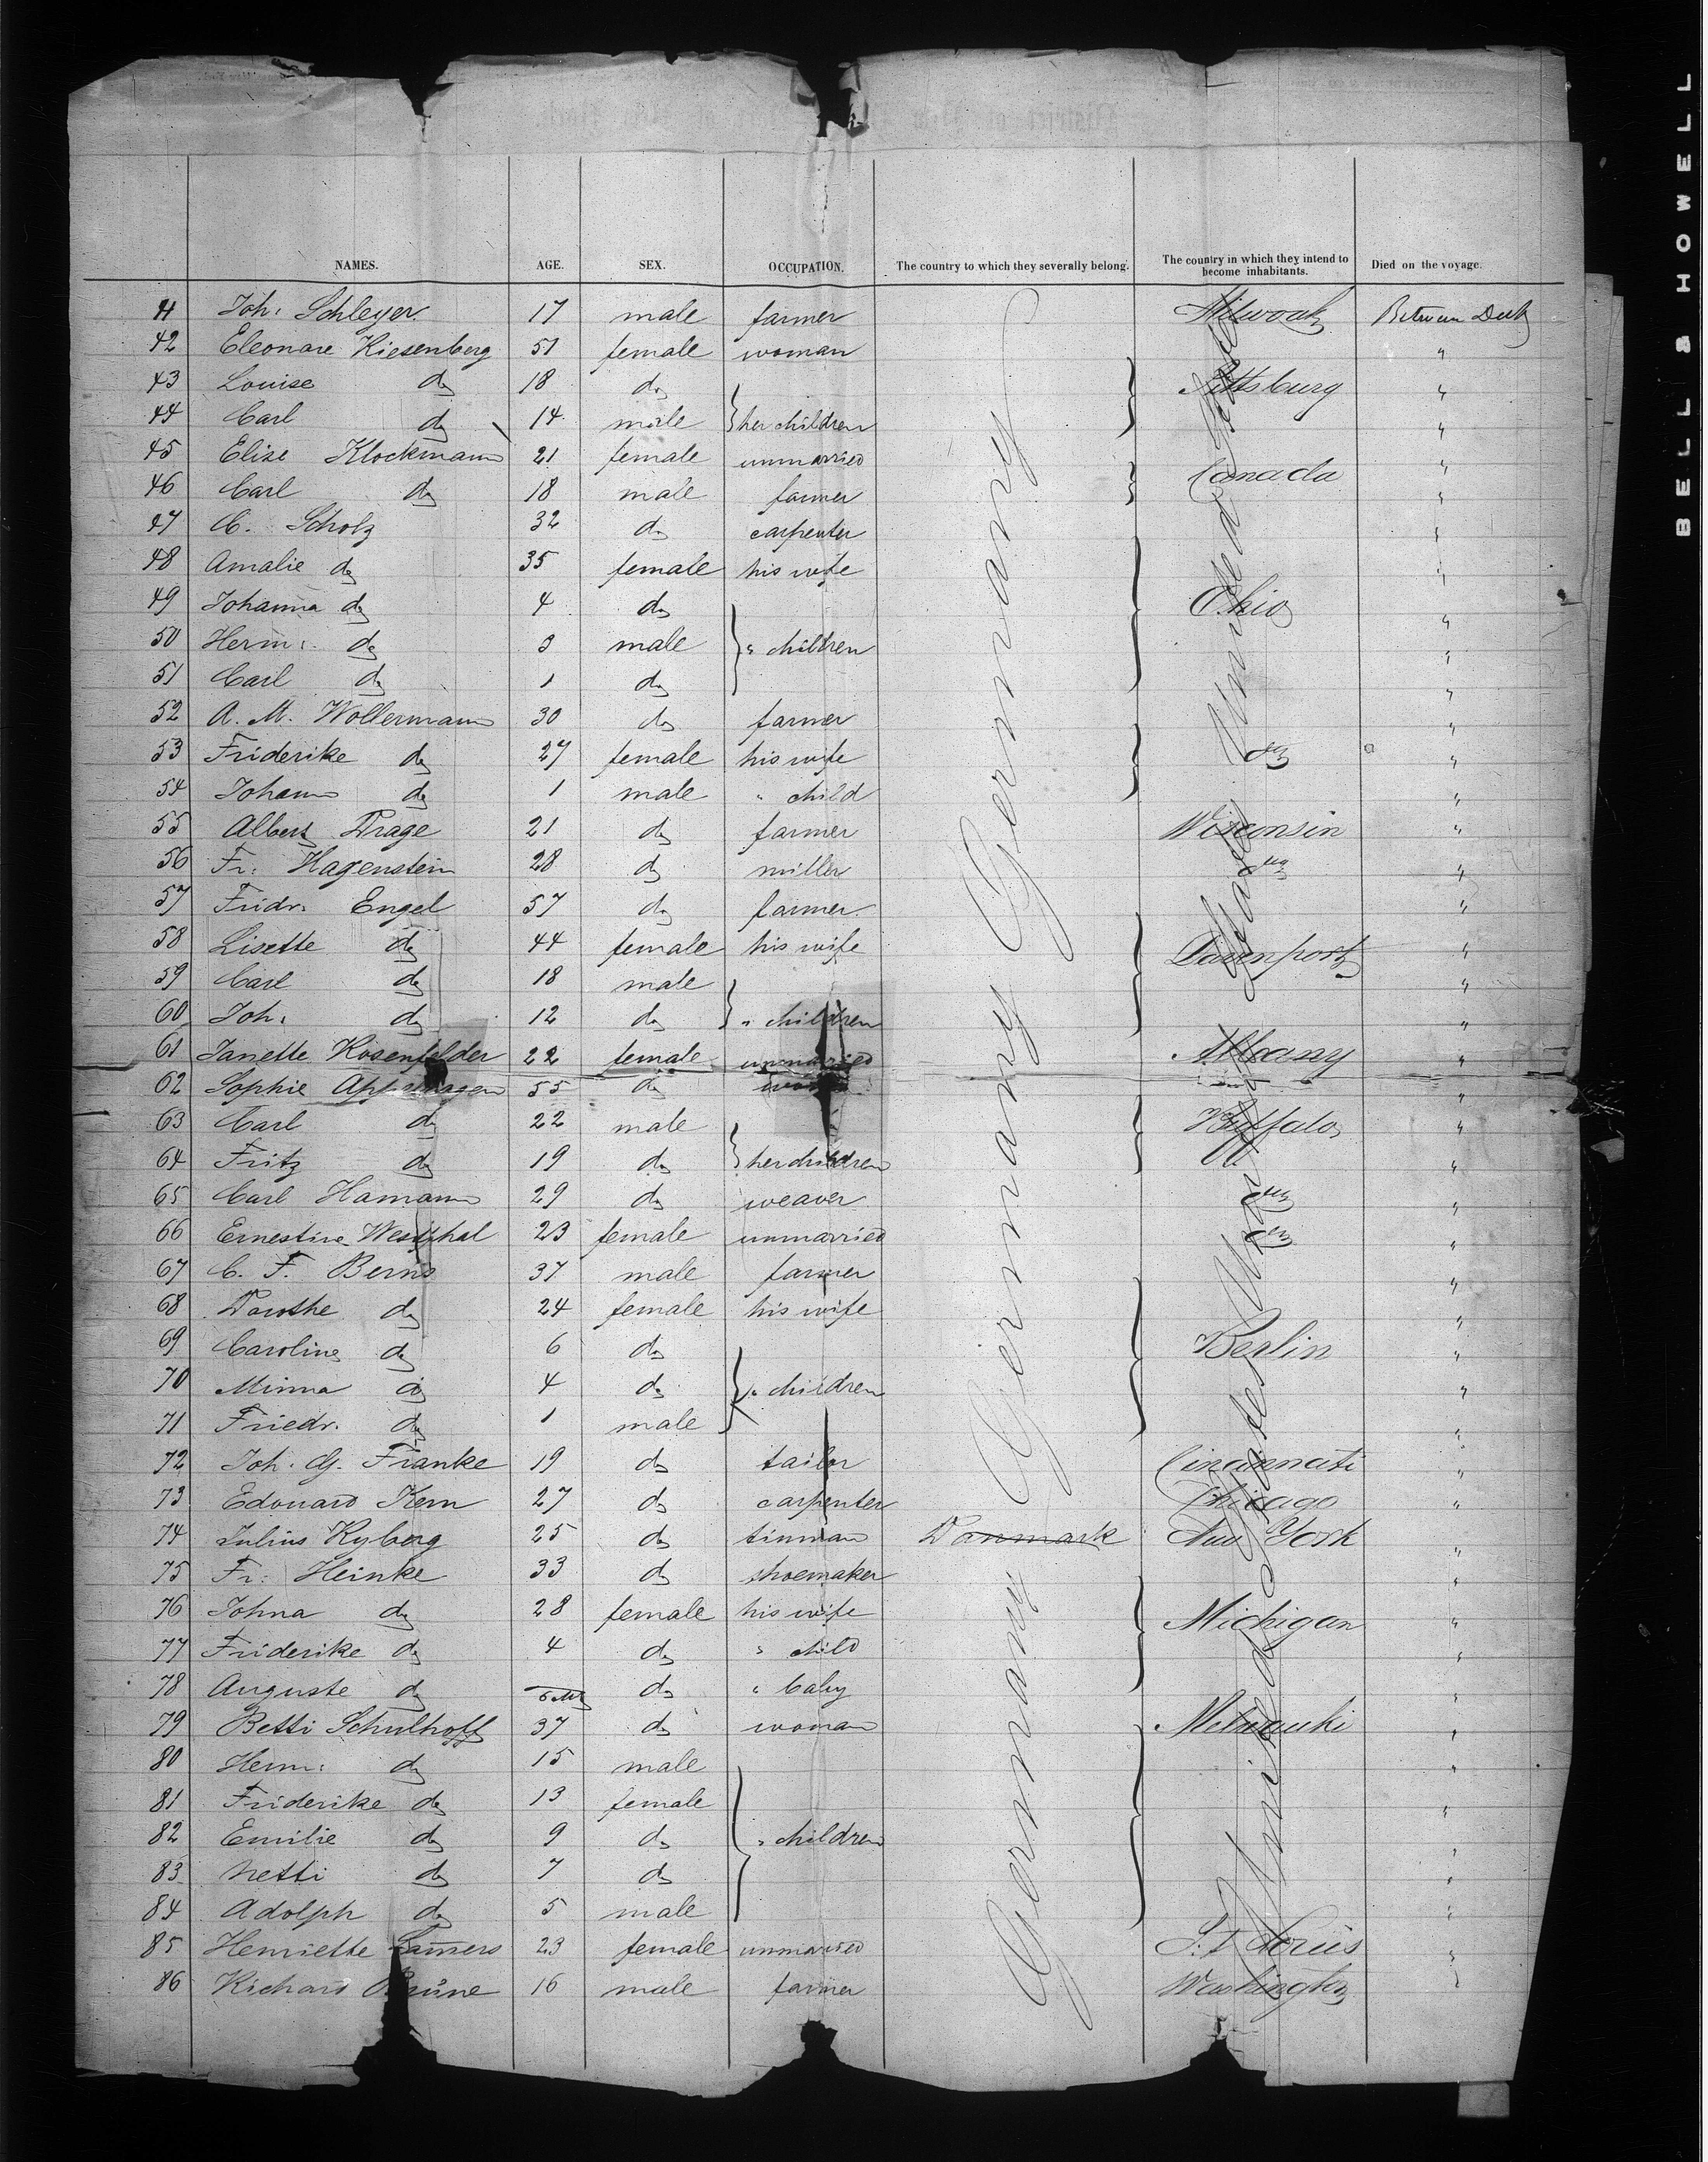 NAMES. AGE. SEX. OCCUPATION. The country to which they severally belong. The country in which they intend to become inhabitants. Died on the voyage.
41 Joh: Schleyer 17 male farmer Milwauk Between Deck
42 Eleonare Kiesenberg 51 female woman "
43 Louise do 18 do Pittsburg "
44 Carl do 14 male her children "
45 Elise Klockmann 21 female unmarried "
46 Carl do 18 male farmer Canada "
47 C. Scholz 32 do carpenter "
48 Amalie do 35 female his wife "
49 Johanna do 4 do Ohio "
50 Herm: do 3 male " children "
51 Carl do 1 do "
52 A. M. Wollermann 30 do farmer "
53 Friderike do 27 female his wife do "
54 Johann do 1 male " child "
55 Albert Drage 21 do farmer Wisconsin "
56 Fr: Hagenstein 28 do miller do "
57 Fridr. Engel 57 do farmer "
58 Lisette do 44 female his wife Davenport "
59 Carl do 18 male "
60 Joh: do 12 do " children "
61 Janette Rosenfelder 22 female unmarried Albany "
62 Sophie 55 do woman "
63 Carl do 22 male Buffalo "
64 Fritz do 19 do her children "
65 Carl Hamann 29 do weaver do "
66 Ernestine Westphal 23 female unmarried do "
67 C. F. Berns 37 male farmer "
68 Dorothe do 24 female his wife "
69 Caroline do 6 do Berlin "
70 Minna do 4 do " children "
71 Friedr. do 1 male "
72 Joh. G. Franke 19 do tailor Cincinnati "
73 Edouard Kern 27 do carpenter Chicago "
74 Julius Kyberg 25 do tinman Danmark New York "
75 Fr: Heinke 33 do shoemaker "
76 Johna do 28 female his wife Michigan "
77 Friderike do 4 do " child "
78 Auguste do 6 M do " baby "
79 Betti Schulhoff 37 do woman Melwauki "
80 Herm: do 15 male "
81 Friderike do 13 female "
82 Emilie do 9 do " children "
83 Netti do 7 do "
84 Adolph do 5 male "
85 Henriette Lam̅ers 23 female unmarried St Louis "
86 Richard Brüne 16 male farmer Washington "
Germany Germany Germany Germany
United States United States United States
BELL & HOWELL